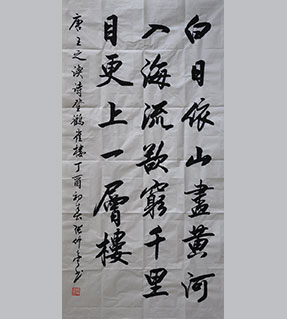 白日依山盡黃河
入海流欲窮千里
目更上一層樓
唐王之渙詩登鸛雀樓丁酉初春張仲亭書